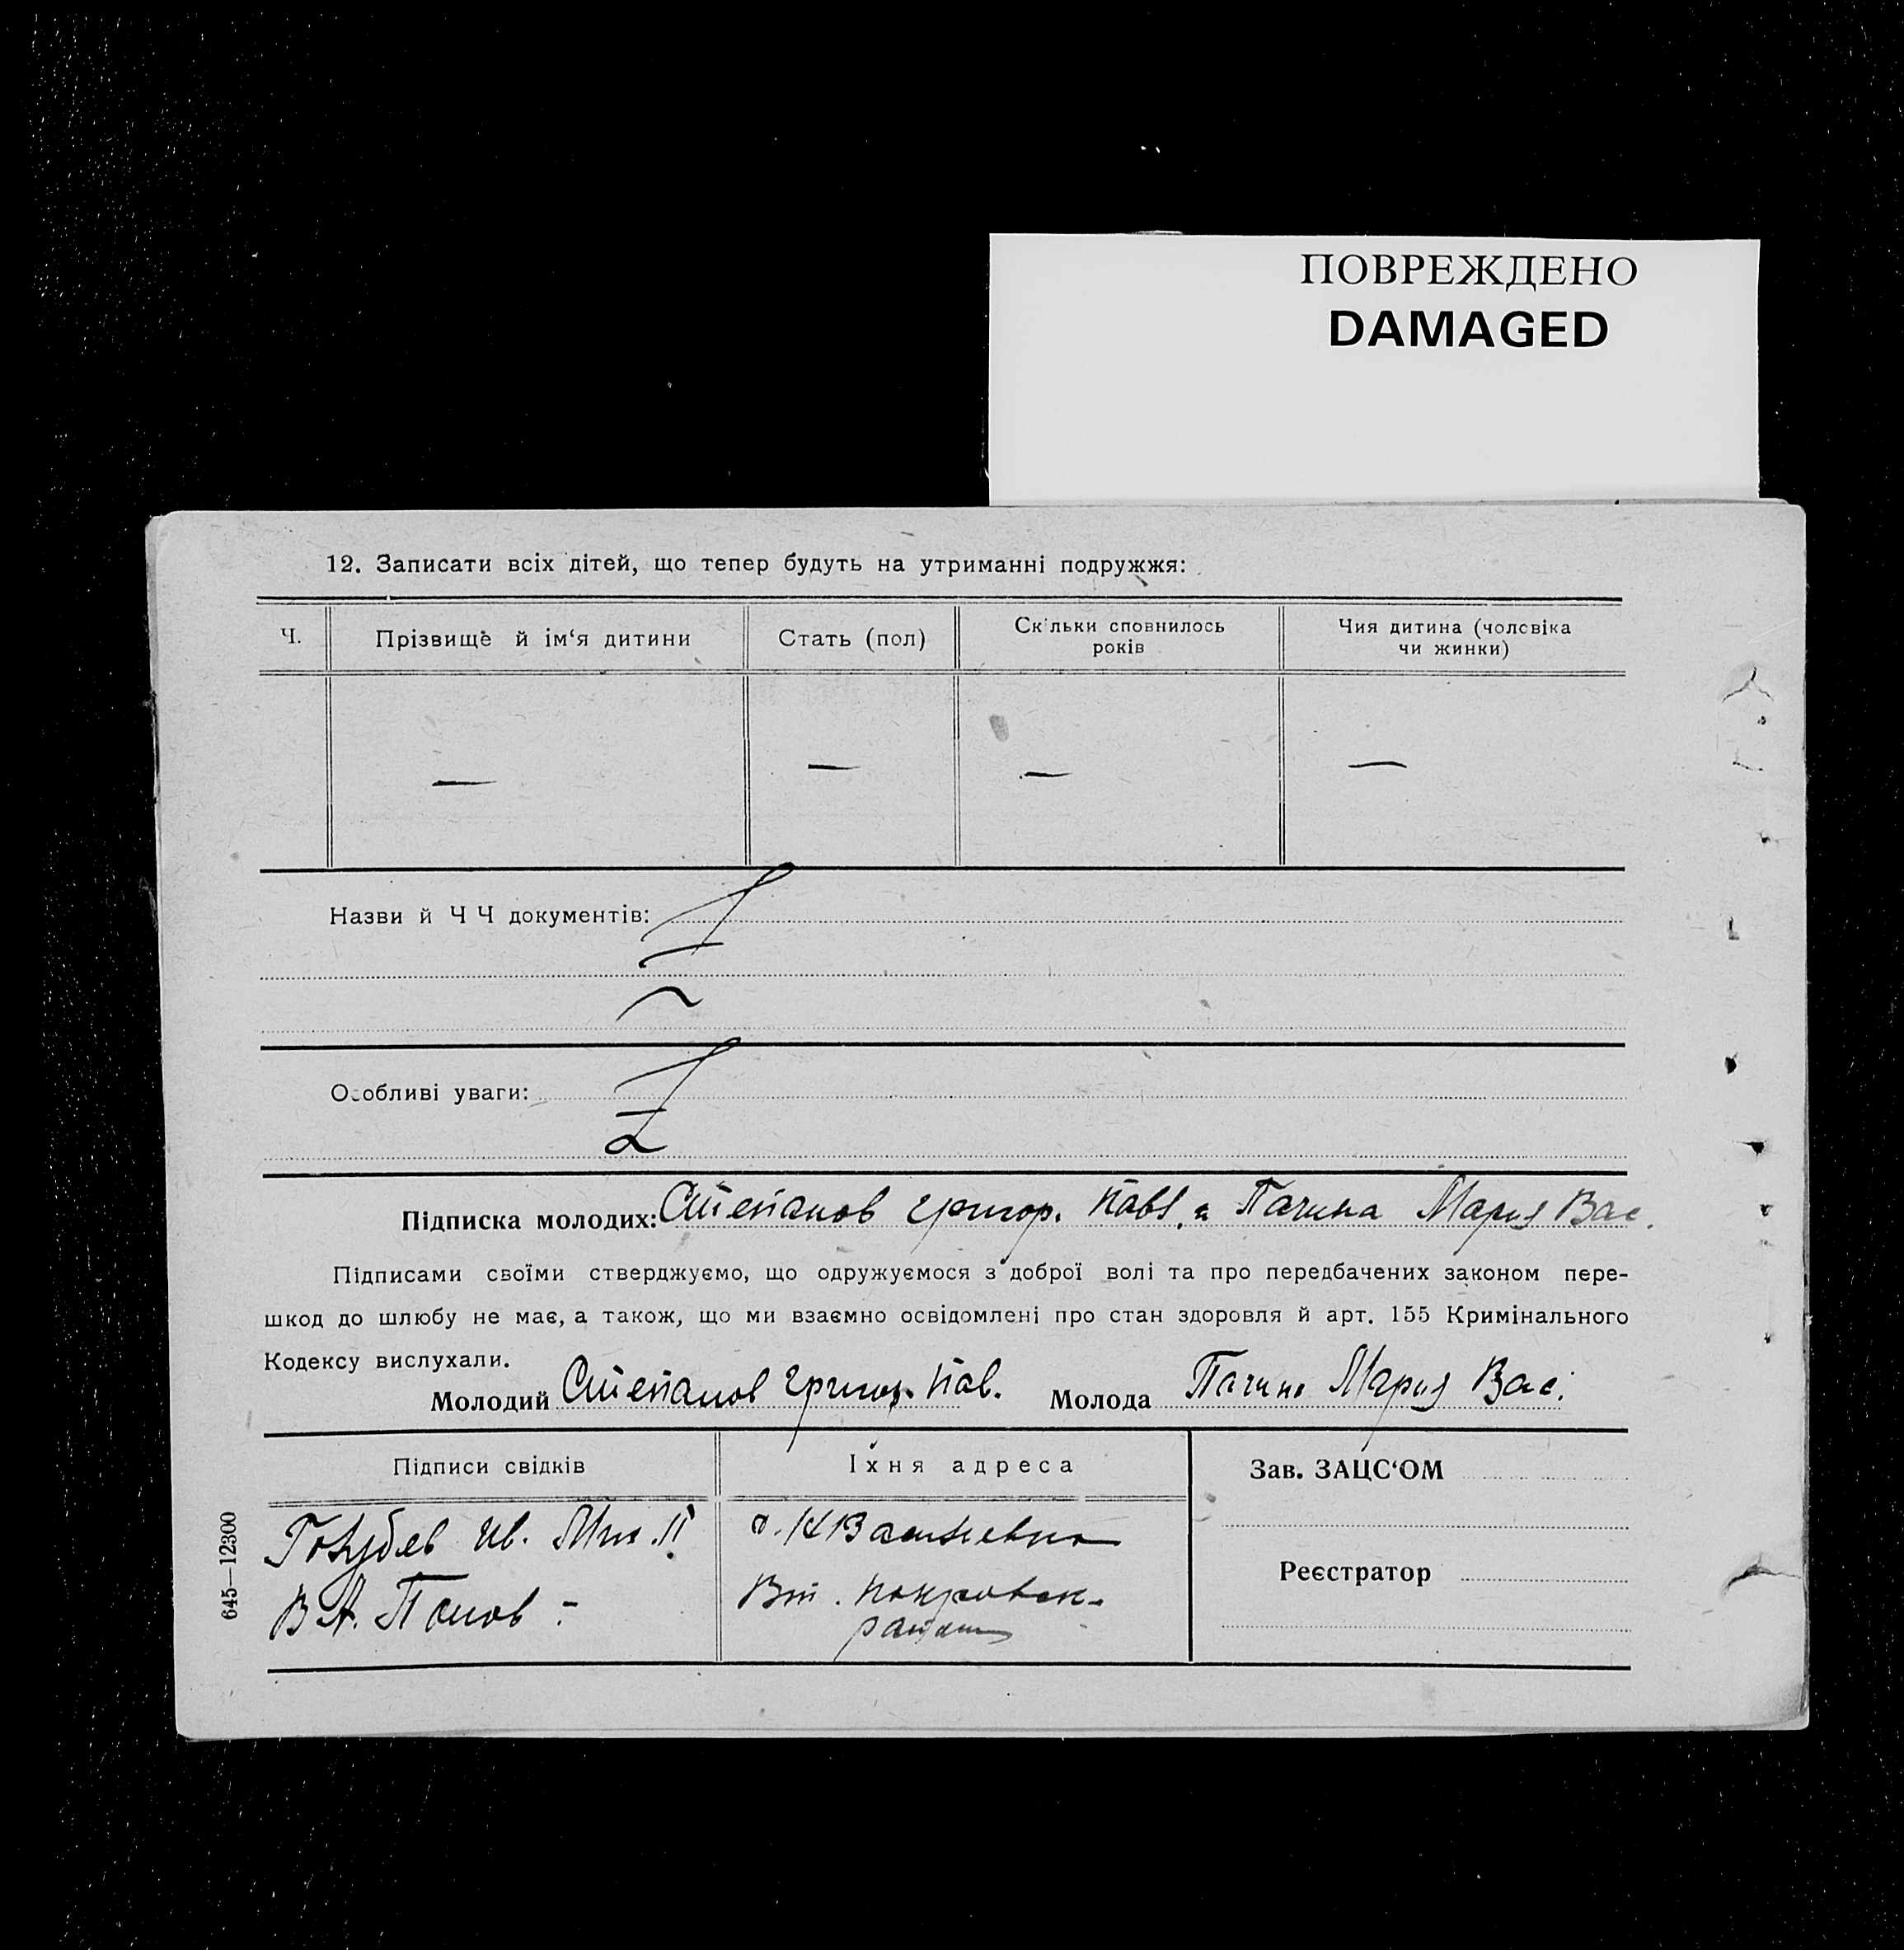 ПОВРЕЖДЕНО
DAMAGED
12. Записати всіх дітей, що тепер будуть на утриманні подружжя:
Ч. Прізвище й ім‘я дитини Стать (пол) Скільки сповнилось років Чия дитина (чоловіка чи жинки)
— — — —
Назви й Ч Ч документів:
Особливі уваги:
Підписка молодих: Степанов Григор. Павл. и Пачина Мария Вас.
Підписами своїми стверджуємо, що одружуємося з доброї волі та про передбачених законом пере-
шкод до шлюбу не має, а також, що ми взаємно освідомлені про стан здоровля й арт. 155 Кримінального
Кодексу вислухали.
Молодий Степанов Григор. Пав. Молода Пачина Мария Вас.
Підписи свідків Їхня адреса Зав. ЗАЦС‘ОМ
Голубев Ив.
В. А. Попов Вт. Покровск.
Реєстратор
645—12300